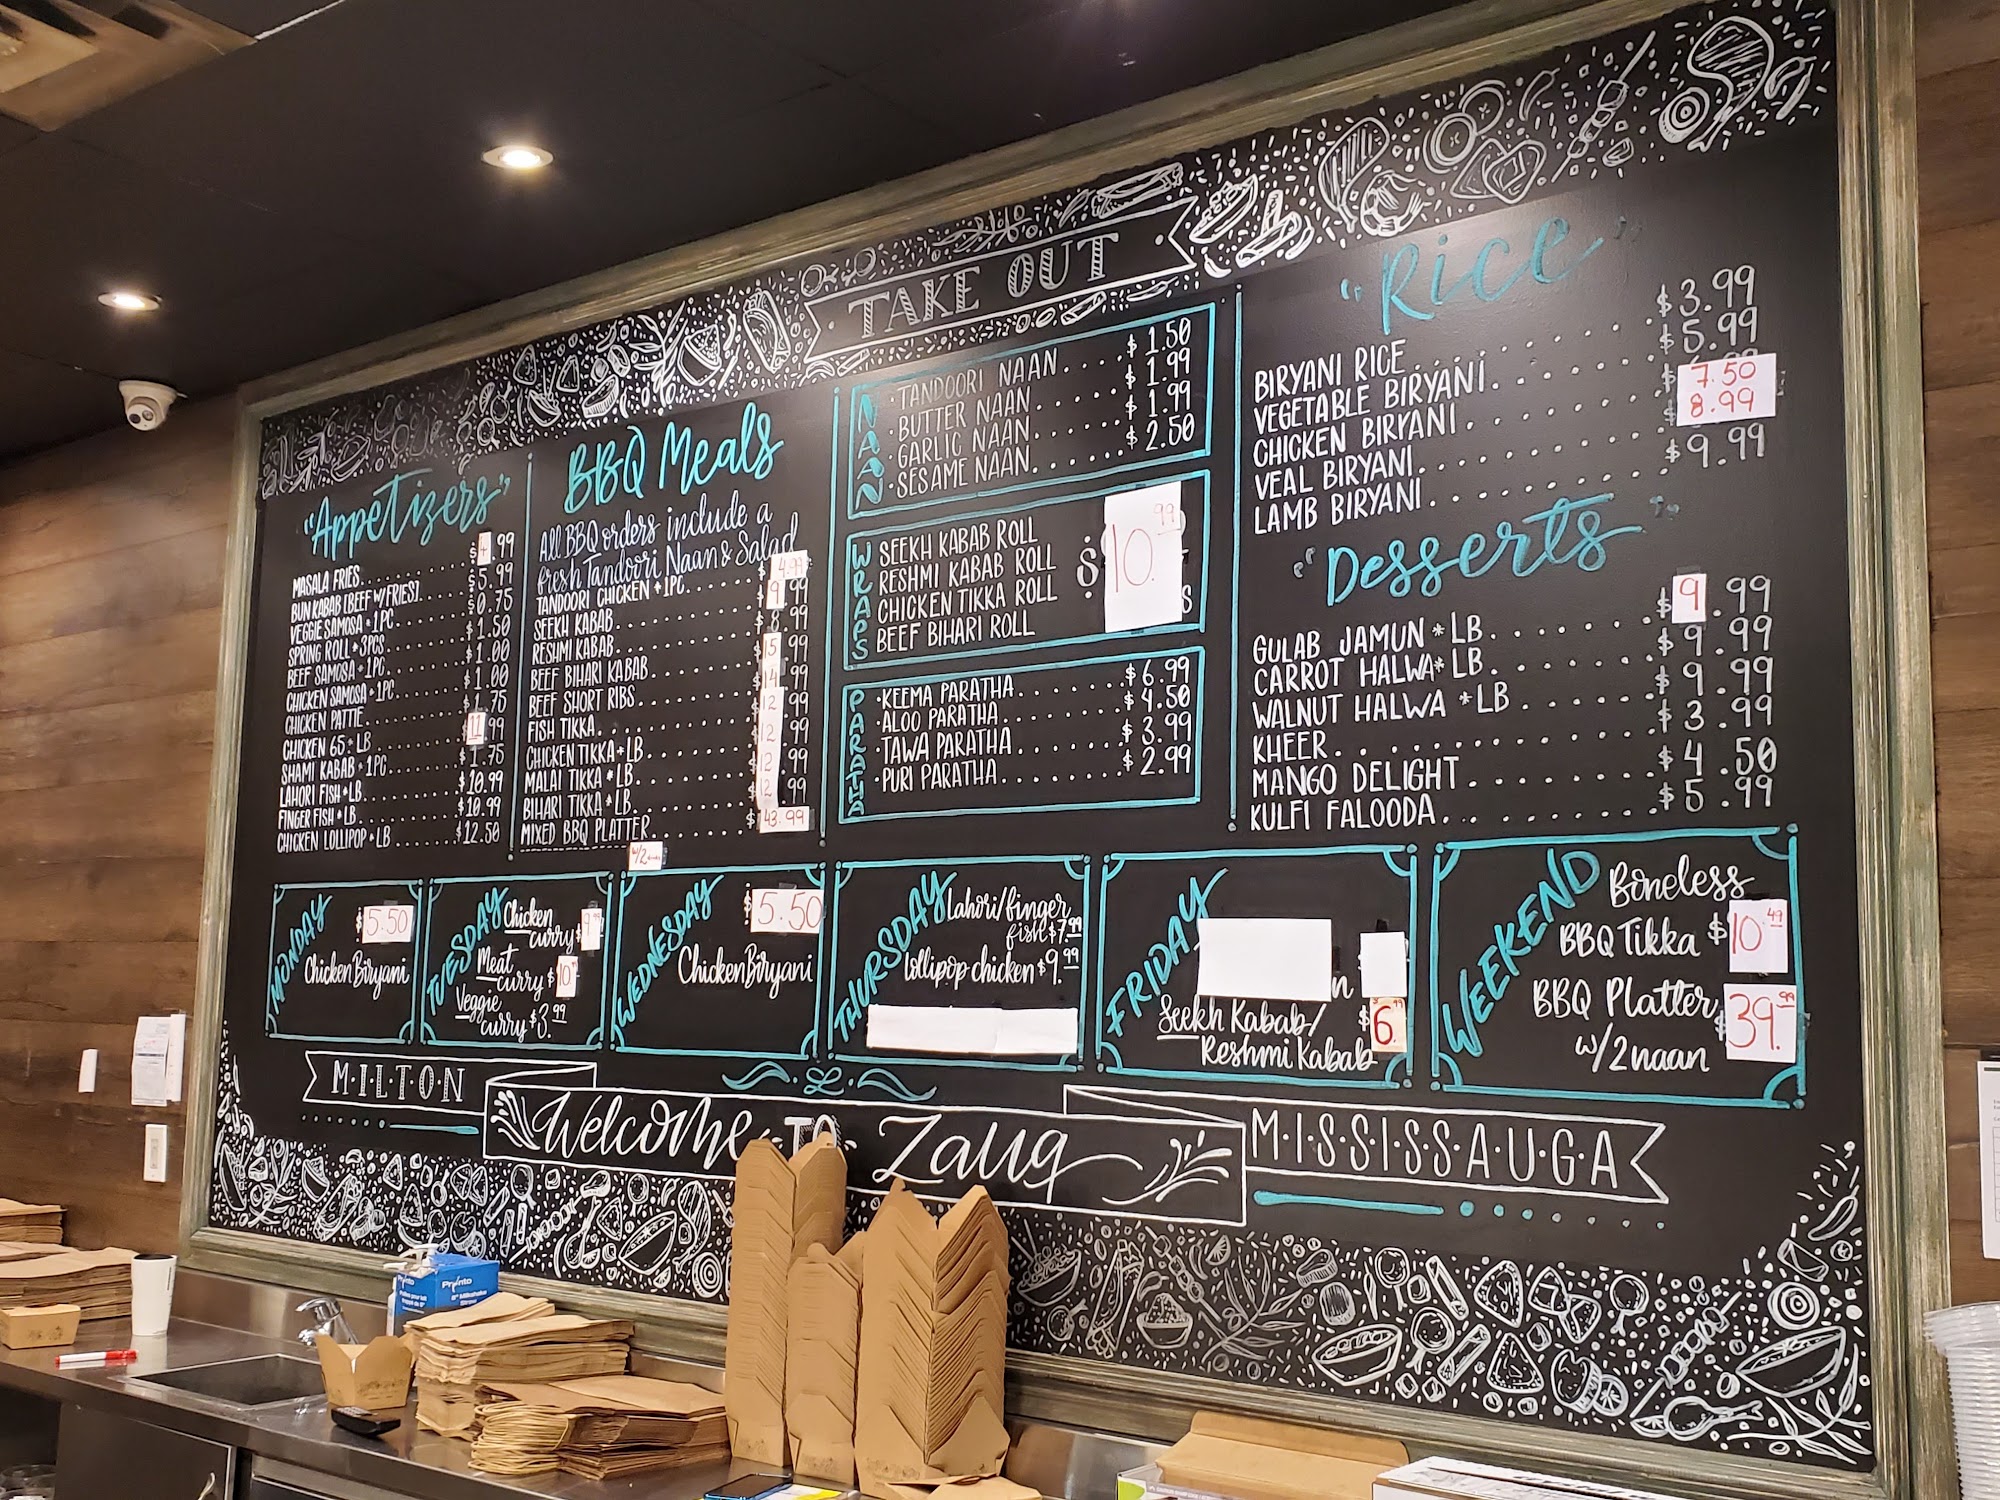 TAKE OUT
"Appetizers"
MASALA FRIES $4.99
BUN KABAB [BEEF W/FRIES] $5.99
VEGGIE SAMOSA * 1PC $0.75
SPRING ROLL * 3PCS $1.50
BEEF SAMOSA * 1PC $1.00
CHICKEN SAMOSA * 1PC $1.00
CHICKEN PATTIE .75
CHICKEN 65 * LB 11.99
SHAMI KABAB * 1PC $1.75
LAHORI FISH * LB $10.99
FINGER FISH * LB $10.99
CHICKEN LOLLIPOP * LB $12.50
BBQ Meals
All BBQ orders include a
fresh Tandoori Naan & Salad
TANDOORI CHICKEN * 1PC $4.99
SEEKH KABAB 9.99
RESHMI KABAB 8.99
BEEF BIHARI KABAB 15.99
BEEF SHORT RIBS 14.99
FISH TIKKA 12.99
CHICKEN TIKKA * LB 12.99
MALAI TIKKA * LB 12.99
BIHARI TIKKA * LB 12.99
MIXED BBQ PLATTER $43.99
W/2
NAAN
TANDOORI NAAN $1.50
BUTTER NAAN $1.99
GARLIC NAAN $1.99
SESAME NAAN $2.50
WRAPS
SEEKH KABAB ROLL
RESHMI KABAB ROLL
CHICKEN TIKKA ROLL
BEEF BIHARI ROLL
$10.99
PARATHA
KEEMA PARATHA $6.99
ALOO PARATHA $4.50
TAWA PARATHA $3.99
PURI PARATHA $2.99
"Rice"
BIRYANI RICE $3.99
VEGETABLE BIRYANI $5.99
CHICKEN BIRYANI $7.50
VEAL BIRYANI 8.99
LAMB BIRYANI $9.99
"Desserts"
GULAB JAMUN * LB $9.99
CARROT HALWA * LB $9.99
WALNUT HALWA * LB $9.99
KHEER $3.99
MANGO DELIGHT $4.50
KULFI FALOODA $5.99
MONDAY
$5.50
Chicken Biryani
TUESDAY
Chicken
curry $9.99
Meat
curry $10.
Veggie
curry $3.99
WEDNESDAY
$5.50
Chicken Biryani
THURSDAY
Lahori/finger
fish $7.99
Lollipop chicken $9.99
FRIDAY
n
Seekh Kabab/
Reshmi Kabab
$6.99
WEEKEND
Boneless
BBQ Tikka $10.49
BBQ Platter
w/2naan $39.99
MILTON
Welcome TO Zauq
MISSISSAUGA
Pronto
Pronto